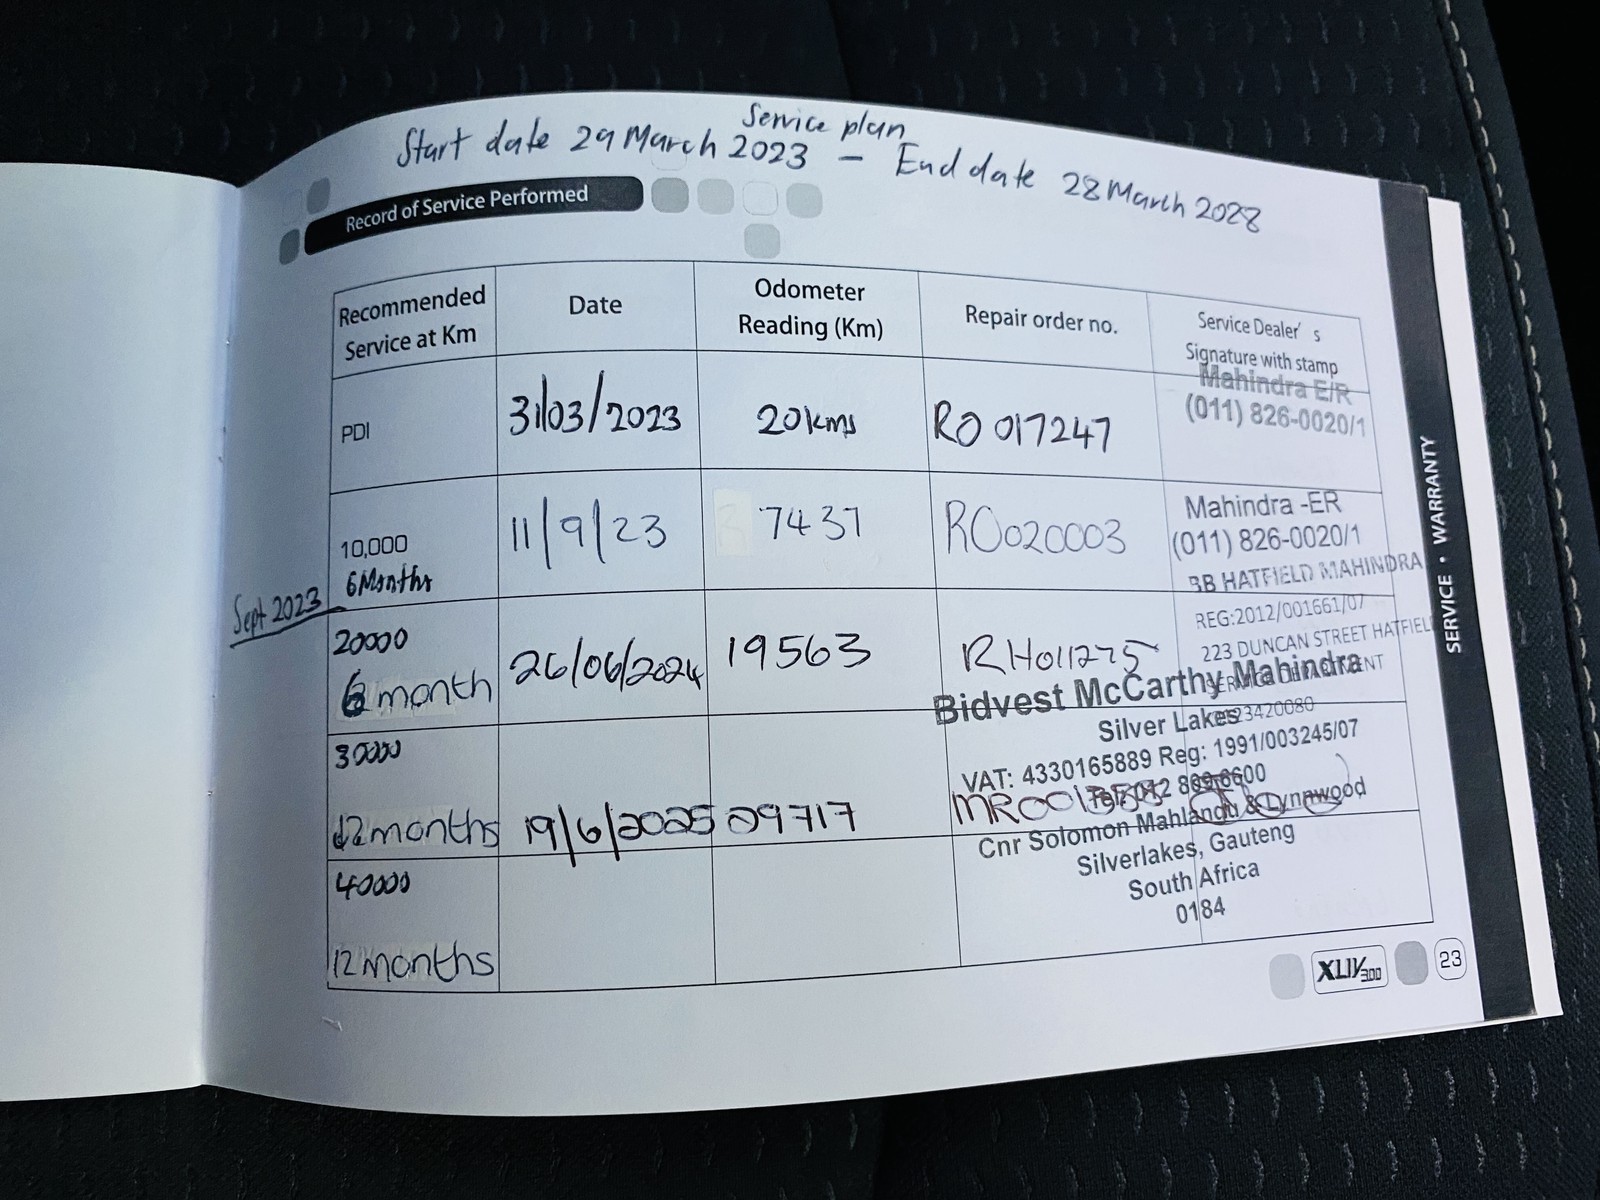 Service plan
Start date 29 March 2023 – End date 28 March 2028
Record of Service Performed
Recommended Service at Km
Date
Odometer Reading (Km)
Repair order no.
Service Dealer's Signature with stamp
PDI
31/03/2023
20kms
RO 017247
Mahindra E/R
(011) 826-0020/1
10,000
6 Months
11/9/23
7437
RO020003
Mahindra -ER
(011) 826-0020/1
Sept 2023
20000
6 month
26/06/2024
19563
RH011275
BB HATFIELD MAHINDRA
REG:2012/001661/07
223 DUNCAN STREET HATFIEL
30000
12 months
19/6/2025
29717
Bidvest McCarthy Mahindra
Silver Lakes
VAT: 4330165889 Reg: 1991/003245/07
Cnr Solomon Mahlangu & Lynnwood
Silverlakes, Gauteng
South Africa
0184
40000
12 months
SERVICE • WARRANTY
XUV300
23